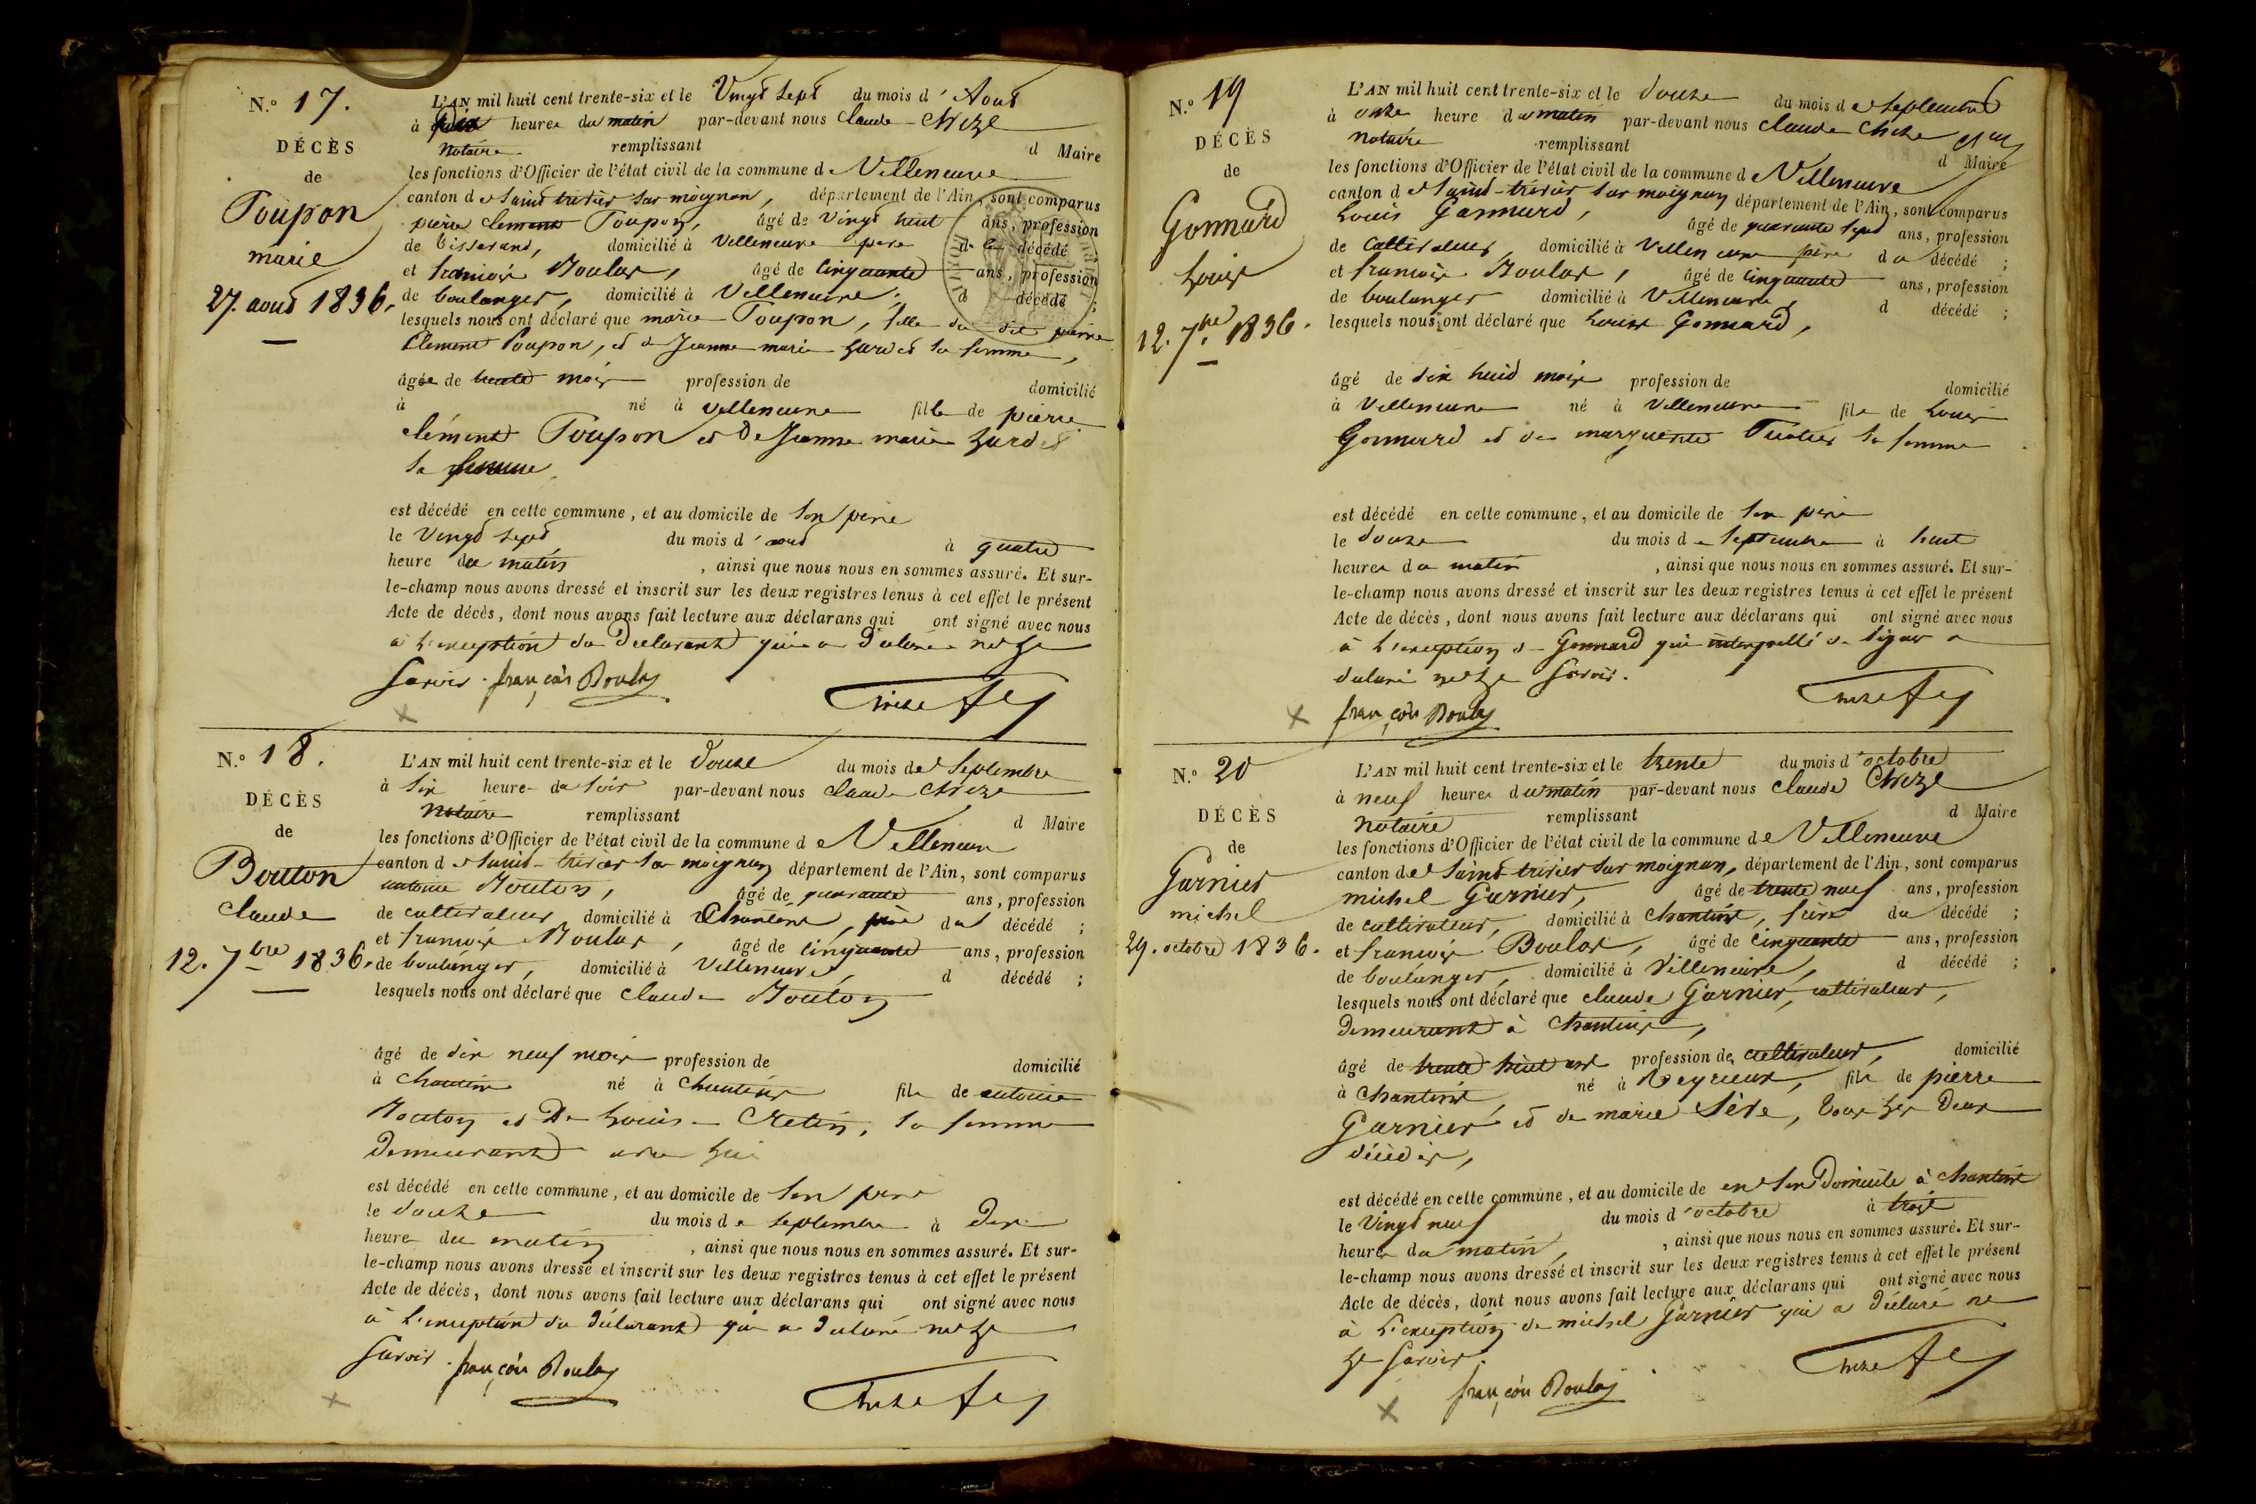 N.º 17.
DÉCÈS
de
Poupon
marie
27. aoud 1836.
L'AN mil huit cent trente-six et le Vingt sept du mois d'Aout
à heures du matin par-devant nous Claude Chize
Notaire remplissant d Maire
les fonctions d'Officier de l'état civil de la commune de Villeneuve
canton de Saint trivier sur moignan, département de l'Ain, sont comparus
pierre clement Poupon, âgé de Vingt huit ans, profession
de tisserand, domicilié à Villeneuve pere de la décédé
et francois Boulas, âgé de Cinquante ans, profession
de boulanger, domicilié à Villeneuve, d décédé ;
lesquels nous ont déclaré que marie Poupon, fille du dit pierre
Clement Poupon, et de Jeanne marie sa femme,
âgée de mois profession de domicilié
à né à villeneuve fille de pierre
clément Poupon et De Jeanne marie
sa femme
est décédé en cette commune, et au domicile de son pere
le Vingt sept du mois d'aoud à quatre
heure du matin, ainsi que nous nous en sommes assuré. Et sur-
le-champ nous avons dressé et inscrit sur les deux registres tenus à cet effet le présent
Acte de décès, dont nous avons fait lecture aux déclarans qui ont signé avec nous
a l'exception du Declarant qui a Declaré ne le
savoir. françois Boulas Chize

N.º 18.
DÉCÈS
de
Bouton
Claude
12. 7bre 1836.
L'AN mil huit cent trente-six et le Douze du mois de Septembre
à Six heure du Soir par-devant nous Claude Chize
Notaire remplissant d Maire
les fonctions d'Officier de l'état civil de la commune de Villeneuve
canton de Saint-trivier sur moignan département de l'Ain, sont comparus
antoine Bouton, âgé de quarante ans, profession
de cultivateur domicilié à Chanteins, père du décédé ;
et francois Boulas, âgé de Cinquante ans, profession
de boulanger, domicilié à Villeneuve, d décédé ;
lesquels nous ont déclaré que claude Bouton
âgé de dix neuf mois profession de domicilié
à Chanteins né à Chanteins fils de antoine
Bouton et De Louise Cretin, sa femme
Demeurant avec lui
est décédé en cette commune, et au domicile de Son pere
le Douze du mois de Septembre à Dix
heure du matin, ainsi que nous nous en sommes assuré. Et sur-
le-champ nous avons dressé et inscrit sur les deux registres tenus à cet effet le présent
Acte de décès, dont nous avons fait lecture aux déclarans qui ont signé avec nous
à l'exception du Déclarant qui a Declaré ne le
Savoir. françois Boulas Chize

N.º 19
DÉCÈS
de
Gonnard
Louis
12. 7bre 1836.
L'AN mil huit cent trente-six et le Douze du mois de Septembre
à onze heure du matin par-devant nous Claude Chize
Notaire remplissant d Maire
les fonctions d'Officier de l'état civil de la commune de Villeneuve
canton de Saint-trivier sur moignan département de l'Ain, sont comparus
Louis Gonnard, âgé de quarante sept ans, profession
de Cultivateur, domicilié à Villeneuve père du décédé ;
et francois Boulas, âgé de Cinquante ans, profession
de boulanger domicilié à Villeneuve, d décédé ;
lesquels nous ont déclaré que Louis Gonnard,
âgé de dix huid mois profession de domicilié
à Villeneuve né à Villeneuve fils de Louis
Gonnard et de marguerite sa femme
est décédé en cette commune, et au domicile de Son père
le Douze du mois de Septembre à huit
heures du matin, ainsi que nous nous en sommes assuré. Et sur-
le-champ nous avons dressé et inscrit sur les deux registres tenus à cet effet le présent
Acte de décès, dont nous avons fait lecture aux déclarans qui ont signé avec nous
à l'exception de Gonnard qui interpellé de Signer a
Declaré ne le Savoir. Chize
françois Boulas

N.º 20
DÉCÈS
de
Garnier
michel
29. octobre 1836.
L'AN mil huit cent trente-six et le trente du mois d'octobre
à neuf heures du matin par-devant nous Claude Chize
Notaire remplissant d Maire
les fonctions d'Officier de l'état civil de la commune de Villeneuve
canton de Saint trivier sur moignan, département de l'Ain, sont comparus
michel Garnier, âgé de trente neuf ans, profession
de cultivateur, domicilié à Chanteins, frère du décédé ;
et francois Boulas, âgé de Cinquante ans, profession
de boulanger, domicilié à Villeneuve, d décédé ;
lesquels nous ont déclaré que claude Garnier, cultivateur,
Demeurant à Chanteins,
âgé de trente huit ans profession de cultivateur, domicilié
à Chanteins, né à Reyrieux, fils de pierre
Garnier et de marie Sève, tous les Deux
décédés,
est décédé en cette commune, et au domicile de en Son Domicile à Chanteins
le Vingt neuf du mois d'octobre à trois
heures du matin, ainsi que nous nous en sommes assuré. Et sur-
le-champ nous avons dressé et inscrit sur les deux registres tenus à cet effet le présent
Acte de décès, dont nous avons fait lecture aux déclarans qui ont signé avec nous
à l'exception de michel Garnier qui a Déclaré ne
le Savoir. Chize
françois Boulas